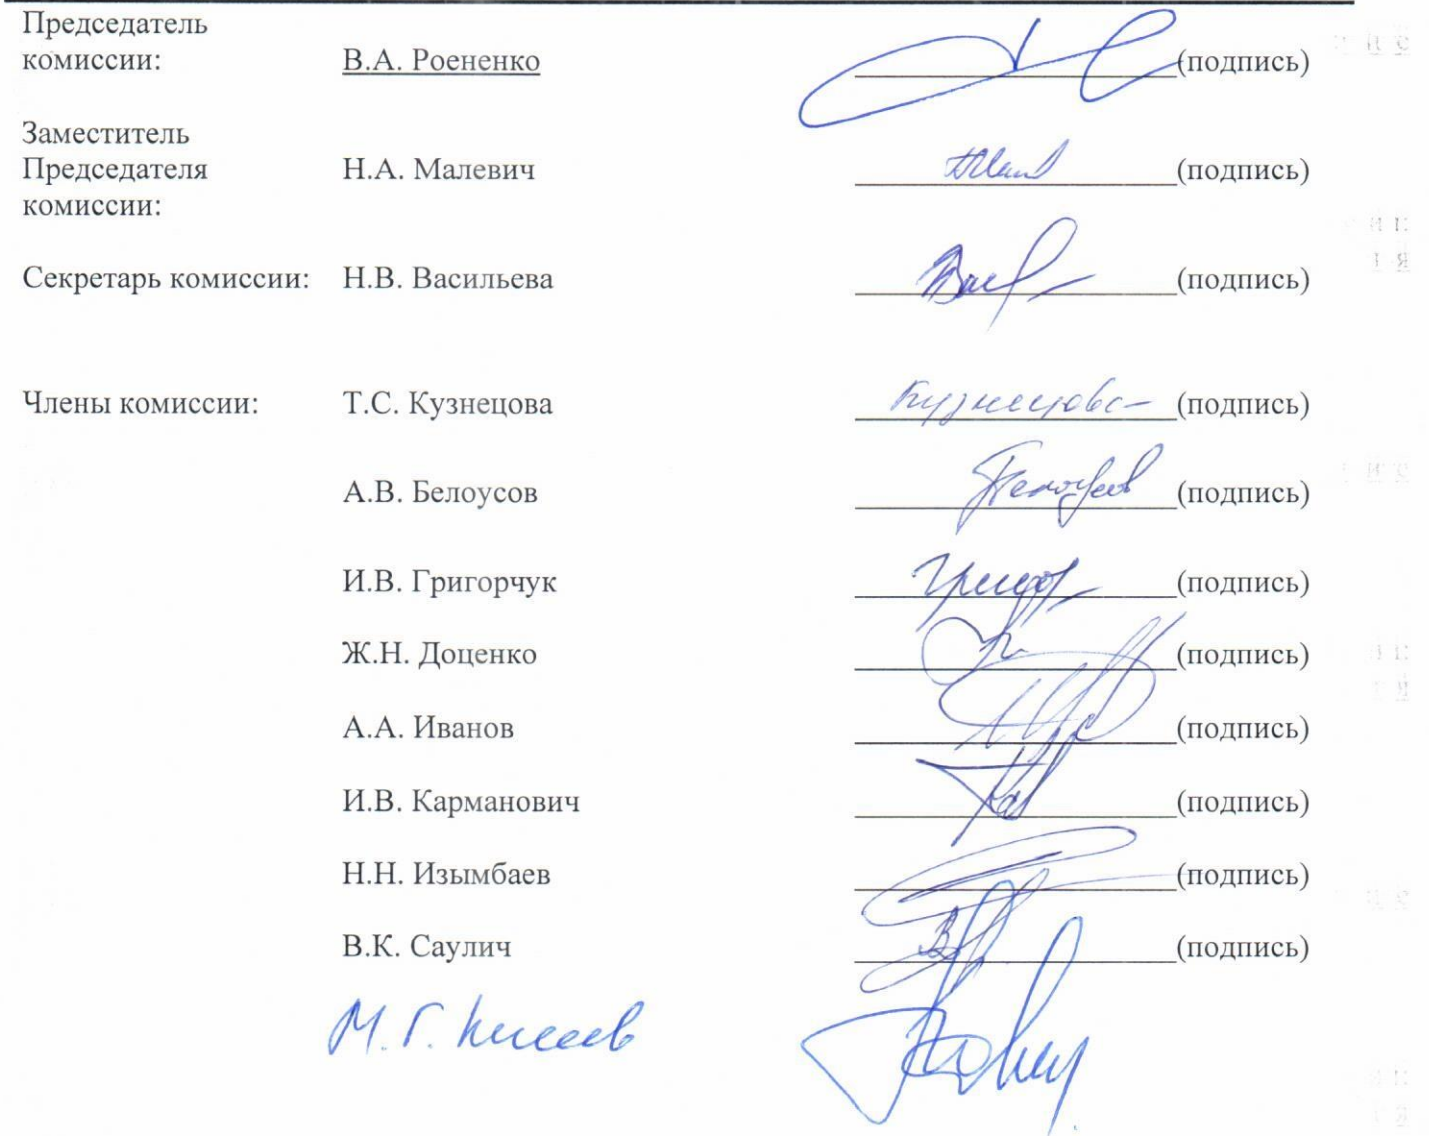 Председатель
комиссии: В.А. Роененко (подпись)
Заместитель
Председателя Н.А. Малевич (подпись)
комиссии:
Секретарь комиссии: Н.В. Васильева (подпись)
Члены комиссии: Т.С. Кузнецова Кузнецова (подпись)
А.В. Белоусов (подпись)
И.В. Григорчук (подпись)
Ж.Н. Доценко (подпись)
А.А. Иванов (подпись)
И.В. Карманович (подпись)
Н.Н. Изымбаев (подпись)
В.К. Саулич (подпись)
М.Г.